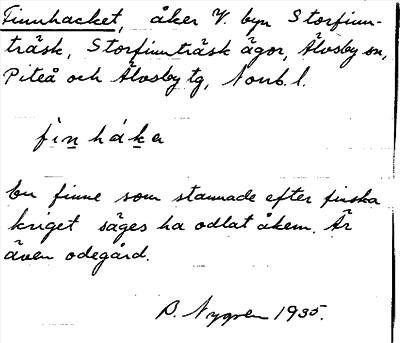 Finnhacket, åker V. byn Storfinn-
träsk, Storfinnträsk ägor, Älvsby sn,
Piteå och Älvsby tg, Norrb. l.
fìnháka
En finne som stannade efter finska
kriget säges ha odlat åkern. Är
även ödegård.
B. Nygren 1935.